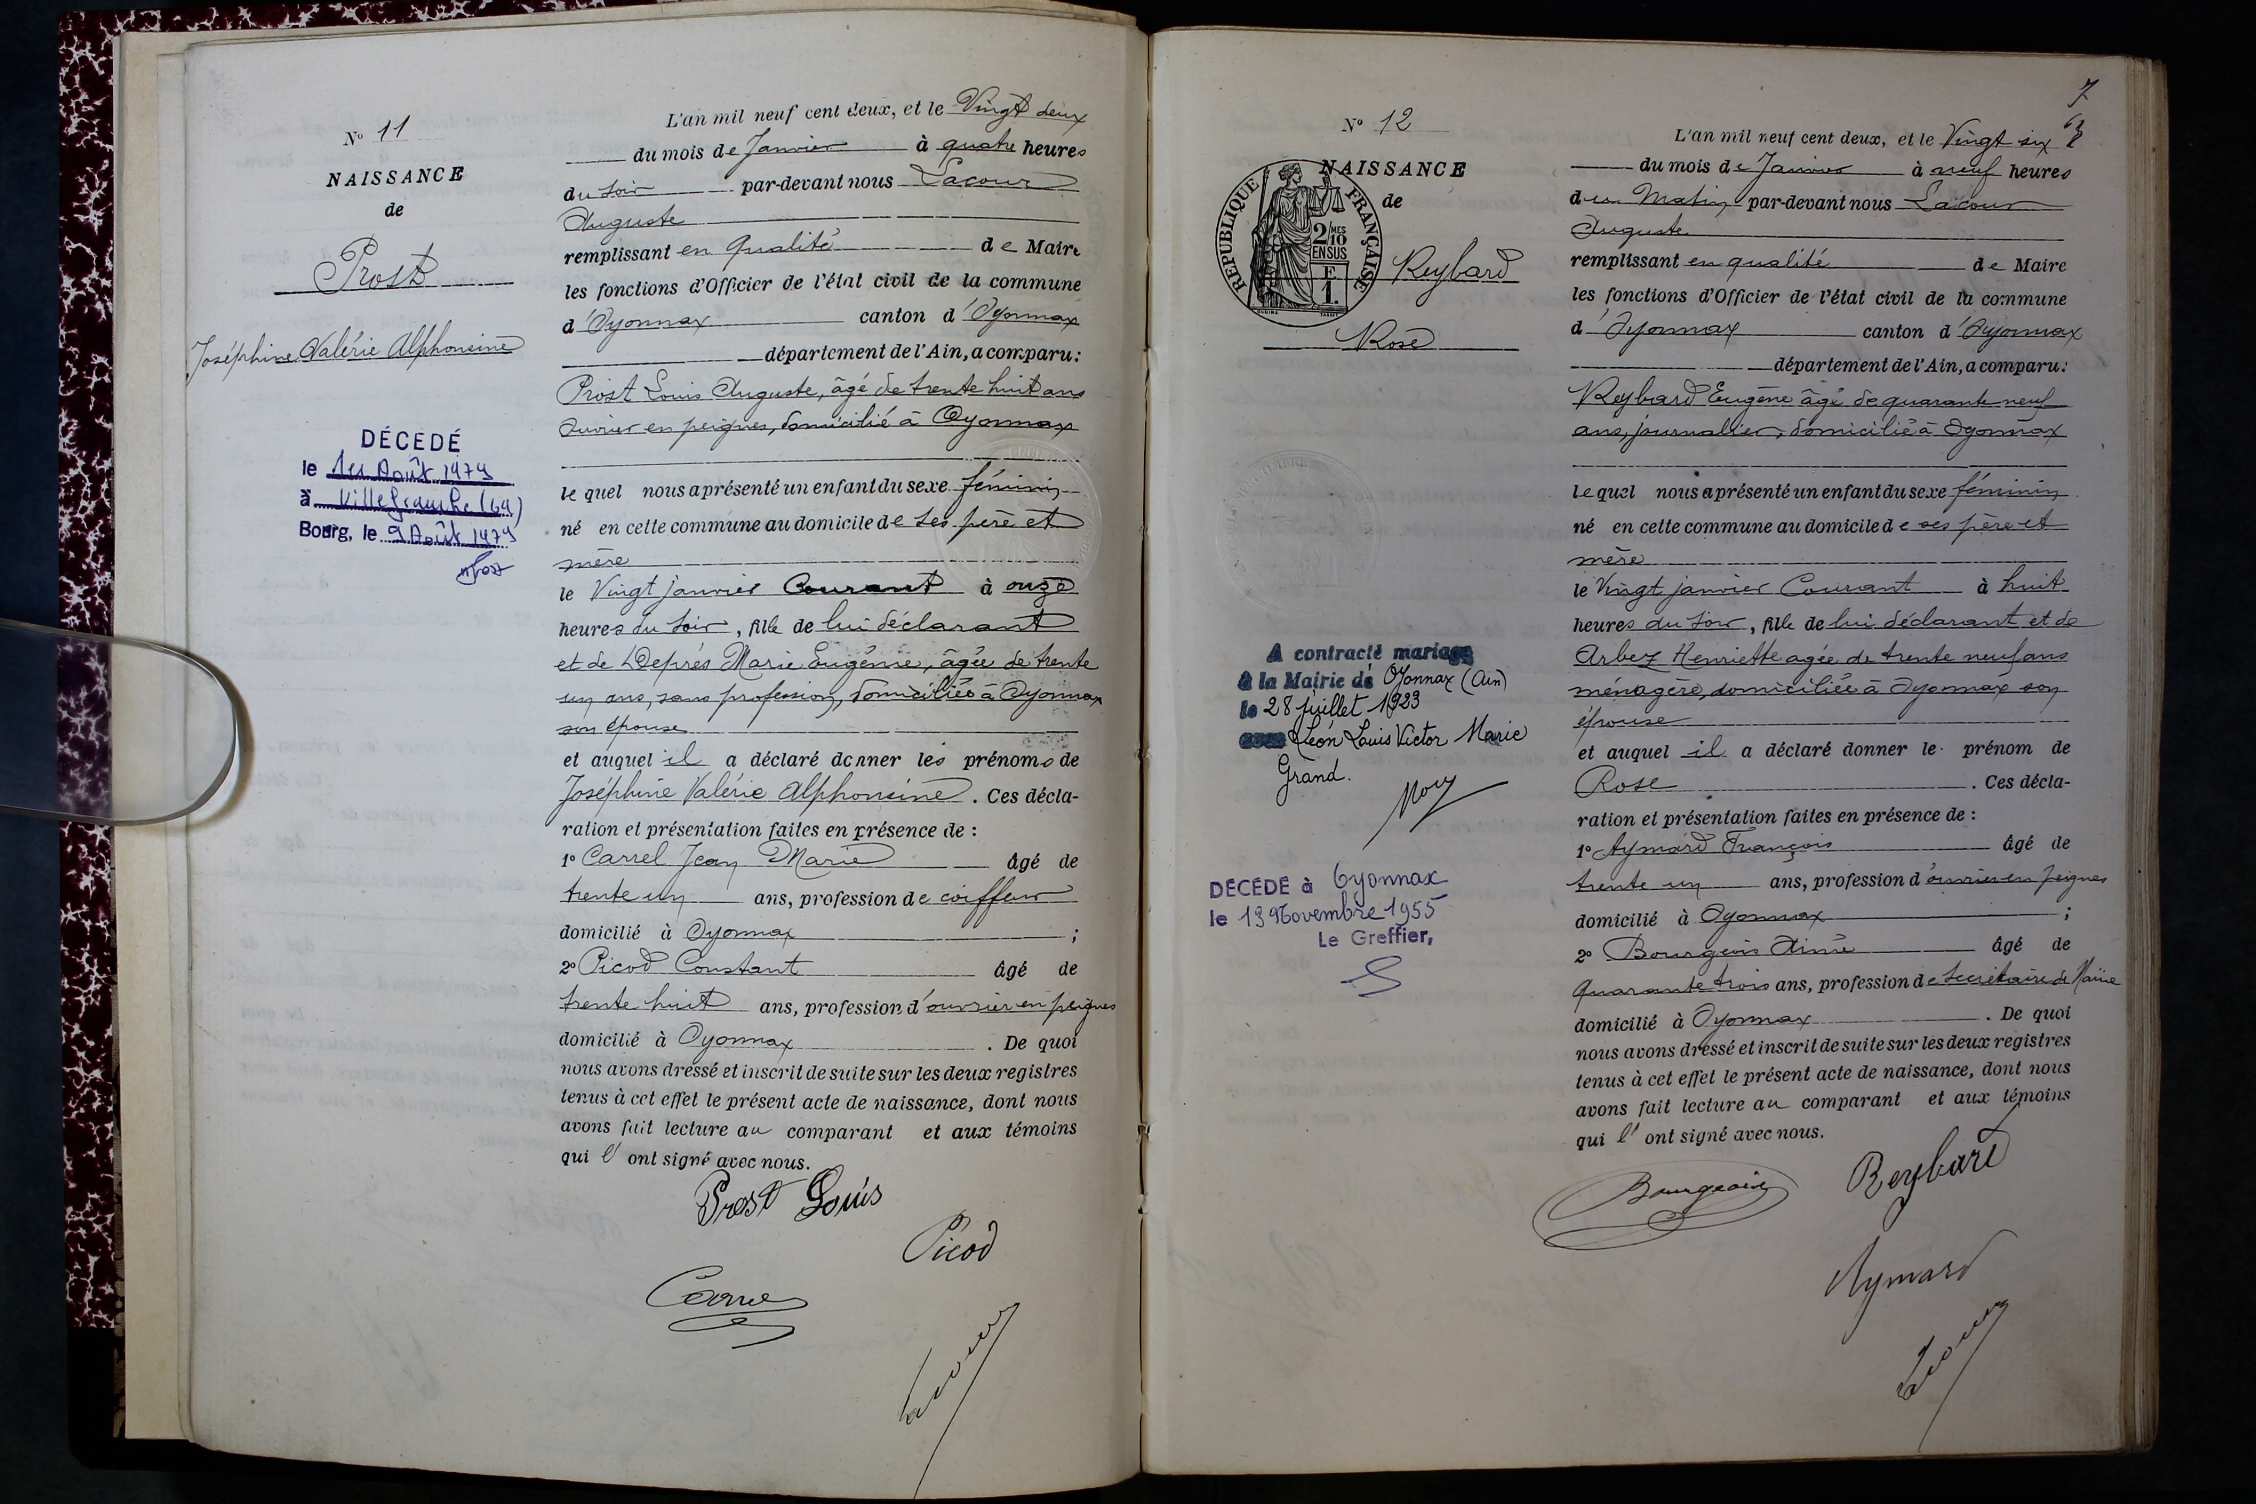 N° 11
NAISSANCE
de
Prost
Joséphine Valérie Alphonsine
DÉCÉDÉ
le 1er Août 1979
à Villefranche (69)
Bourg, le 9 Août 1979
L'an mil neuf cent deux, et le Vingt deux
du mois de Janvier à quatre heures
du soir par-devant nous Lacour
Auguste
remplissant en qualité de Maire
les fonctions d'Officier de l'état civil de la commune
d'Oyonnax canton d'Oyonnax
département de l'Ain, a comparu:
Prost Louis Auguste, âgé de trente huit ans
ouvrier en peignes, domicilié à Oyonnax
lequel nous a présenté un enfant du sexe féminin
né en cette commune au domicile de ses père et
mère
le Vingt janvier Courant à onze
heures du soir, fille de lui déclarant
et de Deprés Marie Eugénie, âgée de trente
un ans, sans profession, domiciliée à Oyonnax
son épouse
et auquel il a déclaré donner les prénoms de
Joséphine Valérie Alphonsine. Ces décla-
ration et présentation faites en présence de :
1° Carrel Jean Marie âgé de
trente un ans, profession de coiffeur
domicilié à Oyonnax ;
2° Picod Constant âgé de
trente huit ans, profession d'ouvrier en peignes
domicilié à Oyonnax. De quoi
nous avons dressé et inscrit de suite sur les deux registres
tenus à cet effet le présent acte de naissance, dont nous
avons fait lecture au comparant et aux témoins
qui l' ont signé avec nous.
Prost Louis
Picod
Lacour
7
N° 12
NAISSANCE
de
REPUBLIQUE FRANÇAISE
2/10 MES
EN SUS
F
1.
Reybard
Rose
A contracté mariage
à la Mairie de Oyonnax (Ain)
le 28 juillet 1923
avec Léon Louis Victor Marie
Grand.
DÉCÉDÉ à Oyonnax
le 19 Novembre 1955
Le Greffier,
L'an mil neuf cent deux, et le Vingt six
du mois de Janvier à neuf heures
du Matin par-devant nous Lacour
Auguste
remplissant en qualité de Maire
les fonctions d'Officier de l'état civil de la commune
d'Oyonnax canton d'Oyonnax
département de l'Ain, a comparu:
Reybard Eugène âgé de quarante neuf
ans, journalier, domicilié à Oyonnax
lequel nous a présenté un enfant du sexe féminin
né en cette commune au domicile de ses père et
mère
le Vingt janvier Courant à huit
heures du soir, fille de lui déclarant et de
Arbez Henriette agée de trente neuf ans
ménagère, domiciliée à Oyonnax son
épouse
et auquel il a déclaré donner le prénom de
Rose. Ces décla-
ration et présentation faites en présence de :
1° Aymard François âgé de
trente un ans, profession d'ouvrier en peignes
domicilié à Oyonnax ;
2° Bourgeois Aimé âgé de
quarante trois ans, profession de secrétaire de Mairie
domicilié à Oyonnax. De quoi
nous avons dressé et inscrit de suite sur les deux registres
tenus à cet effet le présent acte de naissance, dont nous
avons fait lecture au comparant et aux témoins
qui l' ont signé avec nous.
Bourgeois
Reybard
Aymard
Lacour